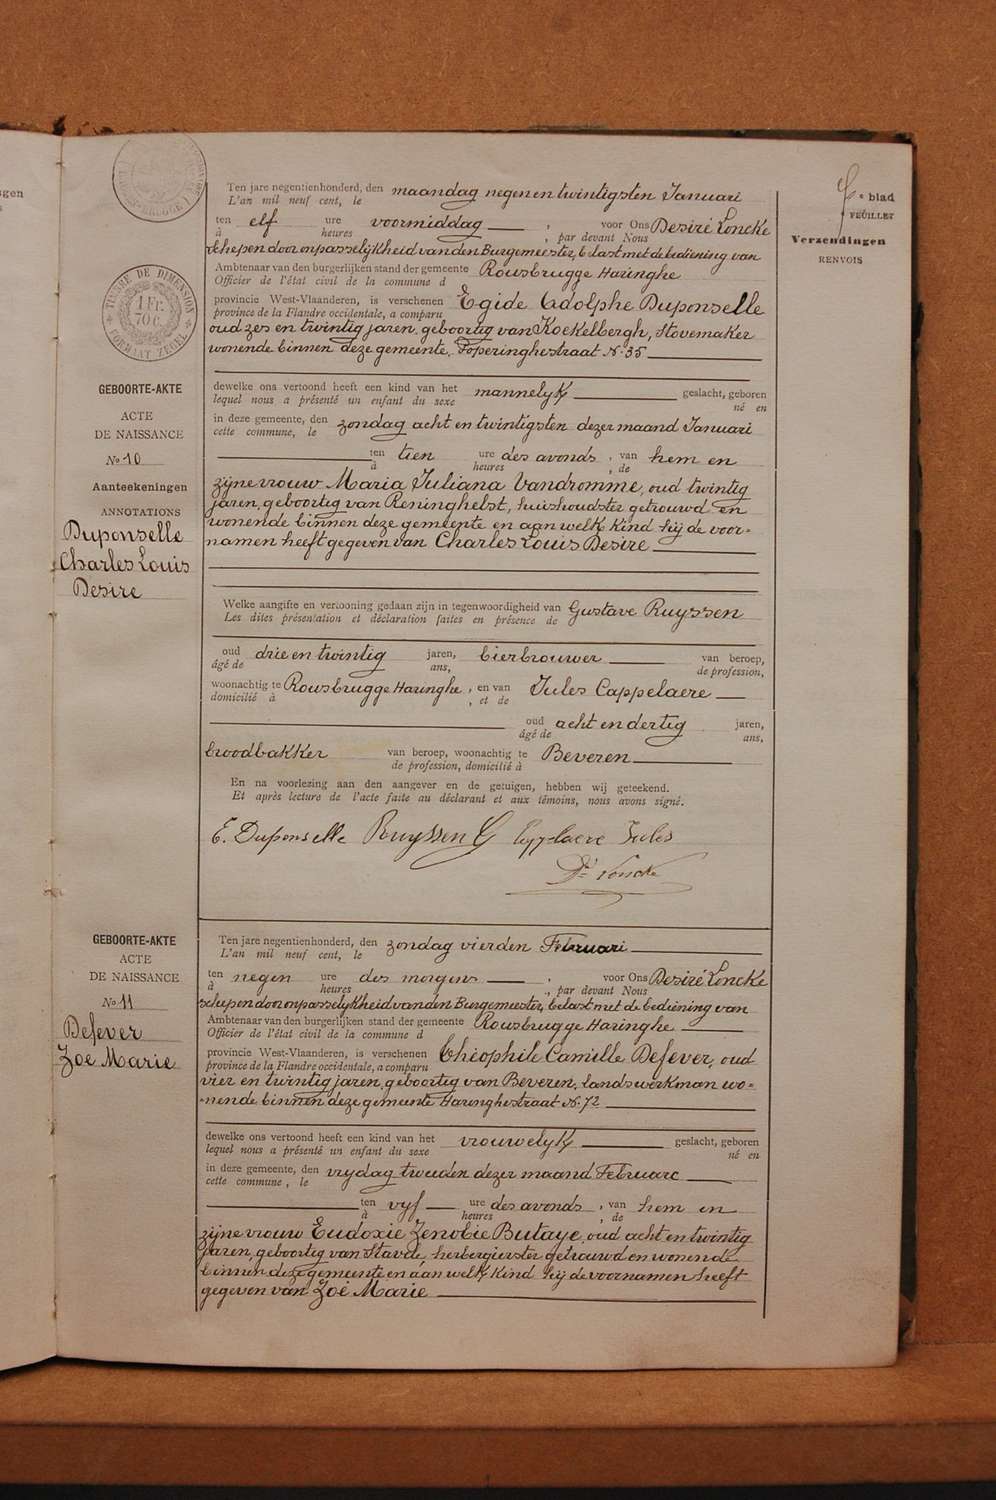 TIMBRE DE DIMENSION
1 Fr.
70 c.
FORMAAT ZEGEL
e blad
FEUILLET
Verzendingen
RENVOIS
GEBOORTE-AKTE
ACTE
DE NAISSANCE
No 10
Aanteekeningen
ANNOTATIONS
Duponselle
Charles Louis
Desire
Ten jare negentienhonderd, den maandag negen en twintigsten Januari
L'an mil neuf cent, le
ten elf ure voormiddag, voor Ons Desiré Loncke
à heures , par devant Nous
schepen door onpasselijkheid van den Burgemeester, belast met de bediening van
Ambtenaar van den burgerlijken stand der gemeente Rousbrugge Haringhe
Officier de l'état civil de la commune d
provincie West-Vlaanderen, is verschenen Egide Adolphe Duponselle
province de la Flandre occidentale, a comparu
oud zes en twintig jaren, geboortig van Koekelbergh, Stovemaker
wonende binnen deze gemeente, Poperinghestraat No 35
dewelke ons vertoond heeft een kind van het mannelyk geslacht, geboren
lequel nous a présenté un enfant du sexe né en
in deze gemeente, den zondag acht en twintigsten dezer maand Januari
cette commune, le
ten tien ure des avonds, van hem en
à heures , de
zijne vrouw Maria Juliana Vandromme, oud twintig
jaren, geboortig van Reninghelst, huishoudster getrouwd en
wonende binnen deze gemeente en aan welk kind hij de voor-
namen heeft gegeven van Charles Louis Desire
Welke aangifte en vertooning gedaan zijn in tegenwoordigheid van Gustave Ruyssen
Les dites présentation et déclaration faites en présence de
oud drie en twintig jaren, bierbrouwer van beroep,
âgé de ans, de profession,
woonachtig te Rousbrugge Haringhe, en van Jules Cappelaere
domicilié à , et de
oud acht en dertig jaren,
âgé de ans,
broodbakker van beroep, woonachtig te Beveren
de profession, domicilié à
En na voorlezing aan den aangever en de getuigen, hebben wij geteekend.
Et après lecture de l'acte faite au déclarant et aux témoins, nous avons signé.
E. Duponselle Ruyssen G Cappelaere Jules
Dé Loncke
GEBOORTE-AKTE
ACTE
DE NAISSANCE
No 11
Defever
Zoé Marie
Ten jare negentienhonderd, den zondag vierden Februari
L'an mil neuf cent, le
ten negen ure des morgens, voor Ons Desiré Loncke
à heures , par devant Nous
schepen door onpasselijkheid van den Burgemeester, belast met de bediening van
Ambtenaar van den burgerlijken stand der gemeente Rousbrugge Haringhe
Officier de l'état civil de la commune d
provincie West-Vlaanderen, is verschenen Théophile Camille Defever, oud
province de la Flandre occidentale, a comparu
vier en twintig jaren, geboortig van Beveren, landswerkman wo-
nende binnen deze gemeente Haringhestraat No 72
dewelke ons vertoond heeft een kind van het vrouwelyk geslacht, geboren
lequel nous a présenté un enfant du sexe né en
in deze gemeente, den vrydag tweeden dezer maand Februare
cette commune, le
ten vyf ure des avonds, van hem en
à heures , de
zijne vrouw Eudoxie Zenobie Butaye, oud acht en twintig
jaren, geboortig van Stavele, herbergierster getrouwd en wonende
binnen deze gemeente en aan welk kind hij de voornamen heeft
gegeven van Zoé Marie